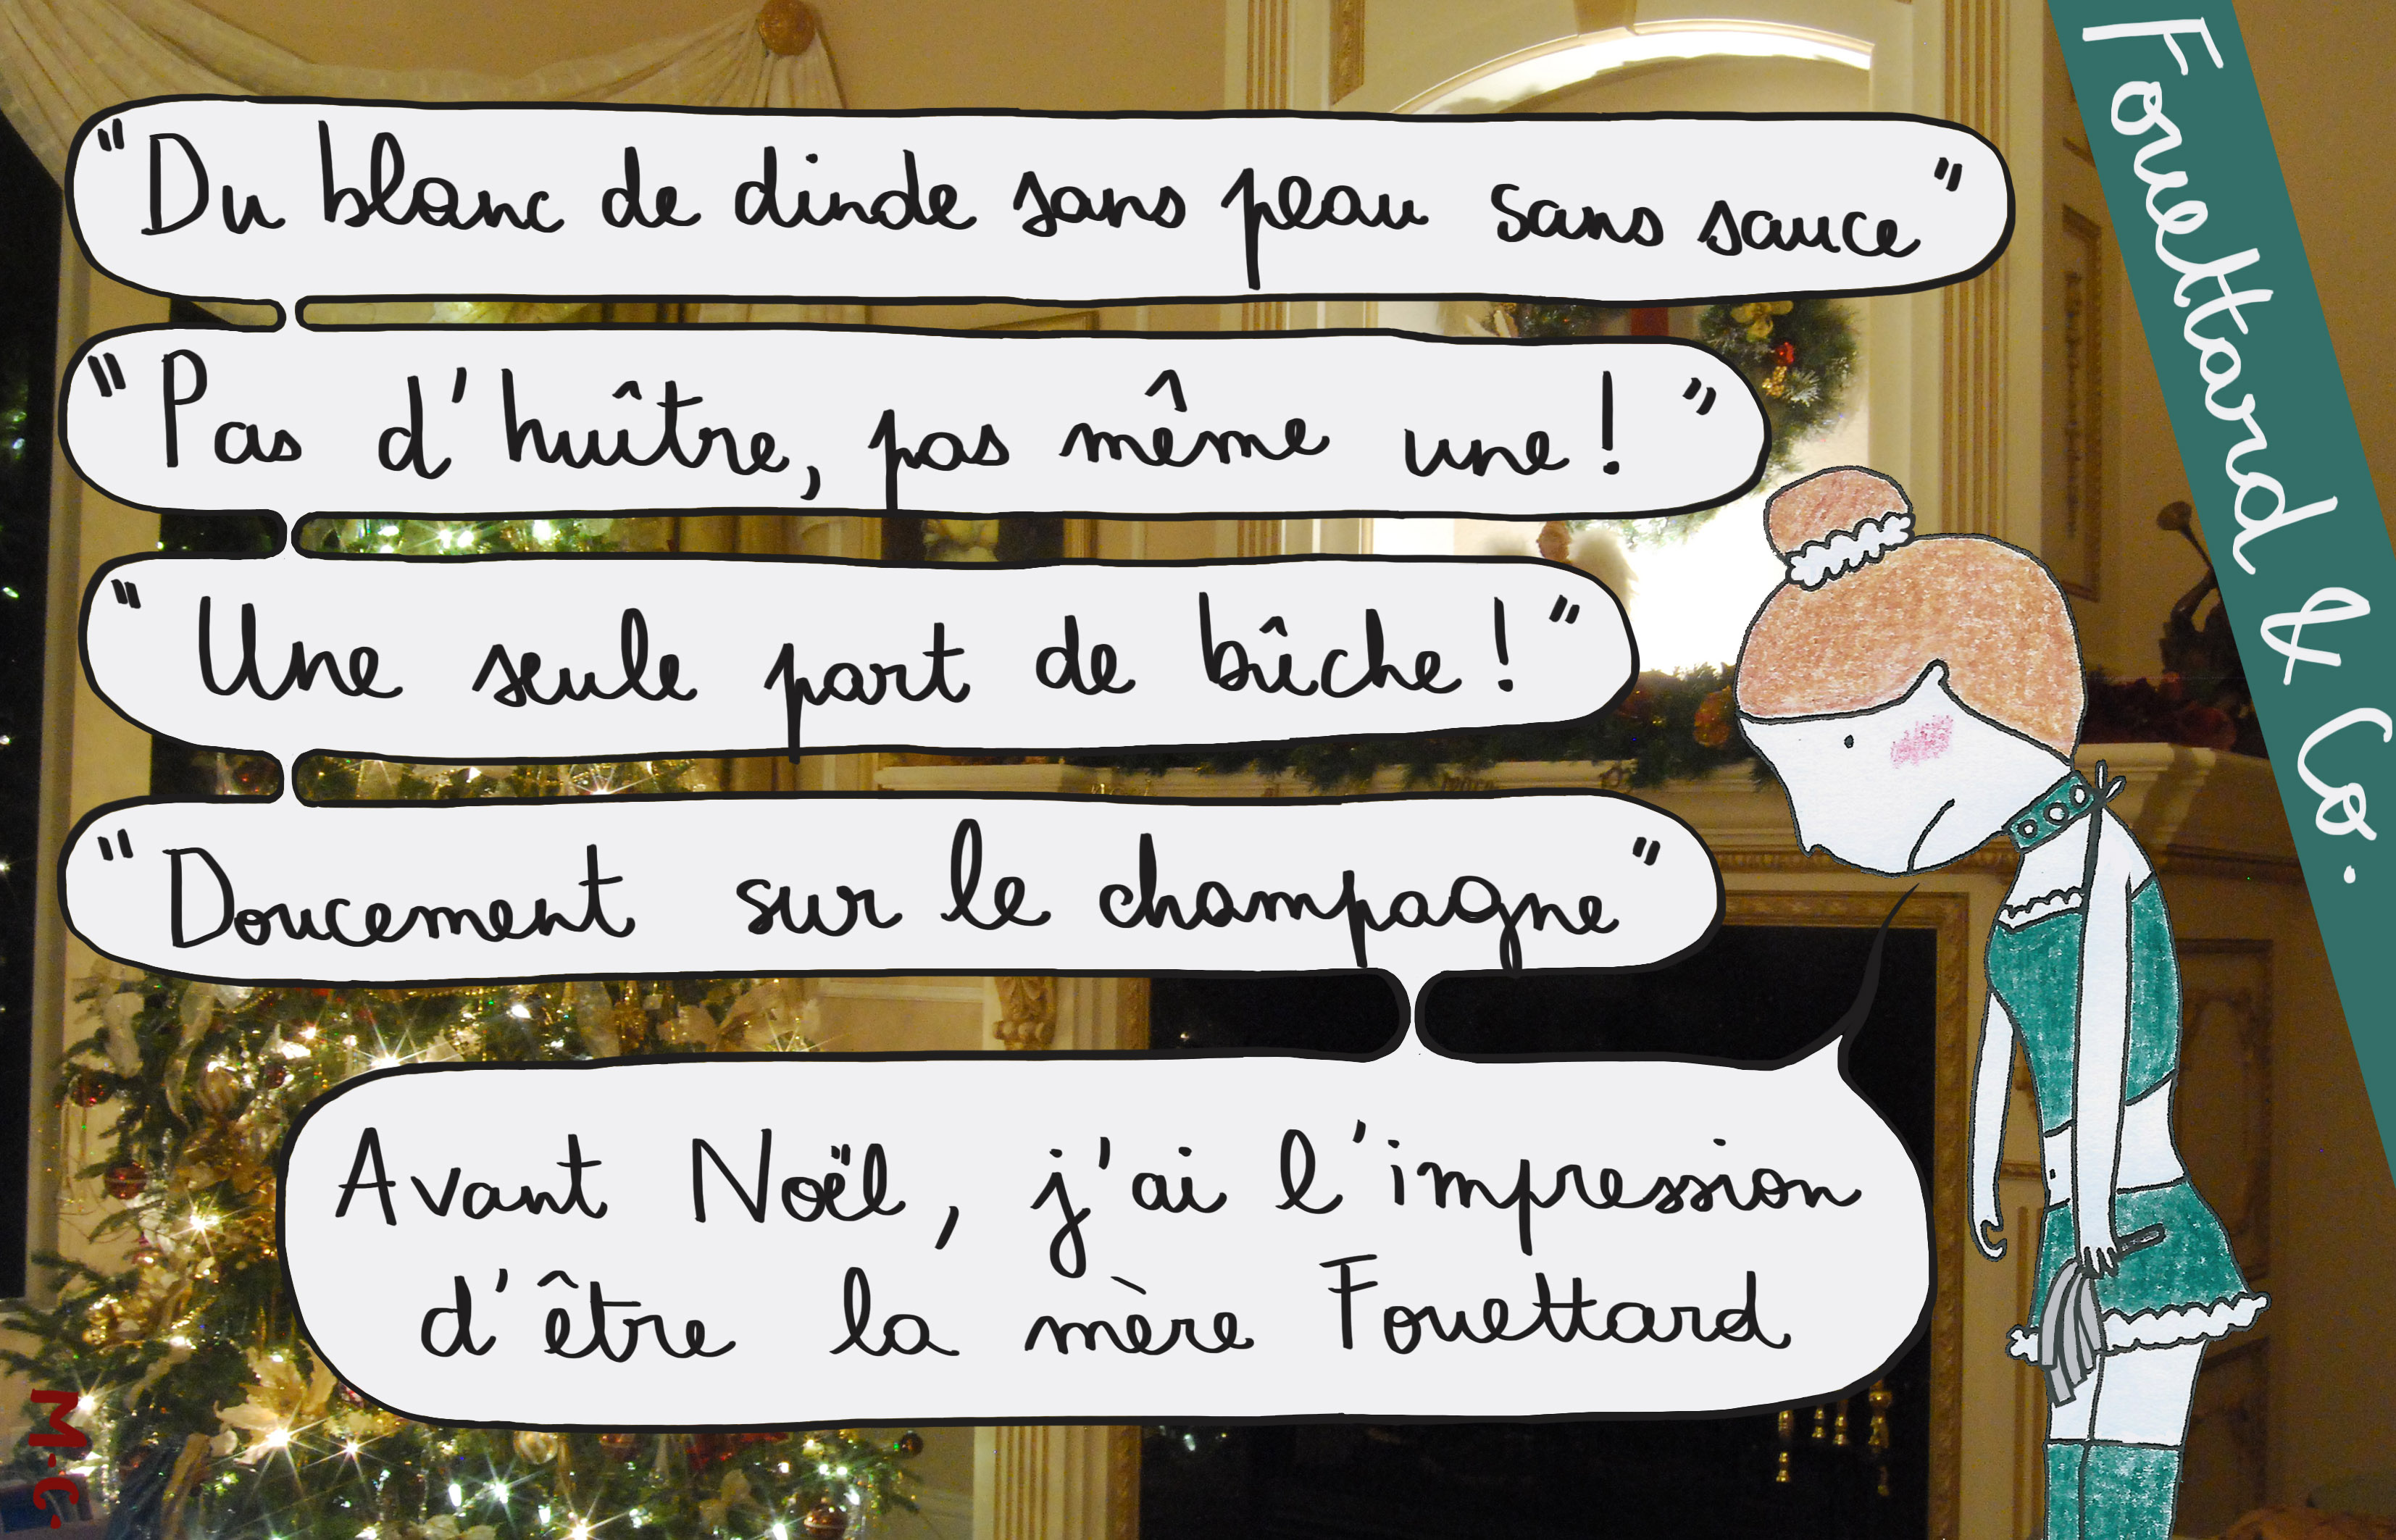 "Du blanc de dinde sans peau sans sauce"
"Pas d'huître, pas même une!"
"Une seule part de bûche!"
"Doucement sur le champagne"
Avant Noël, j'ai l'impression
d'être la mère Fouettard
Fouettard & Co.
M-C.